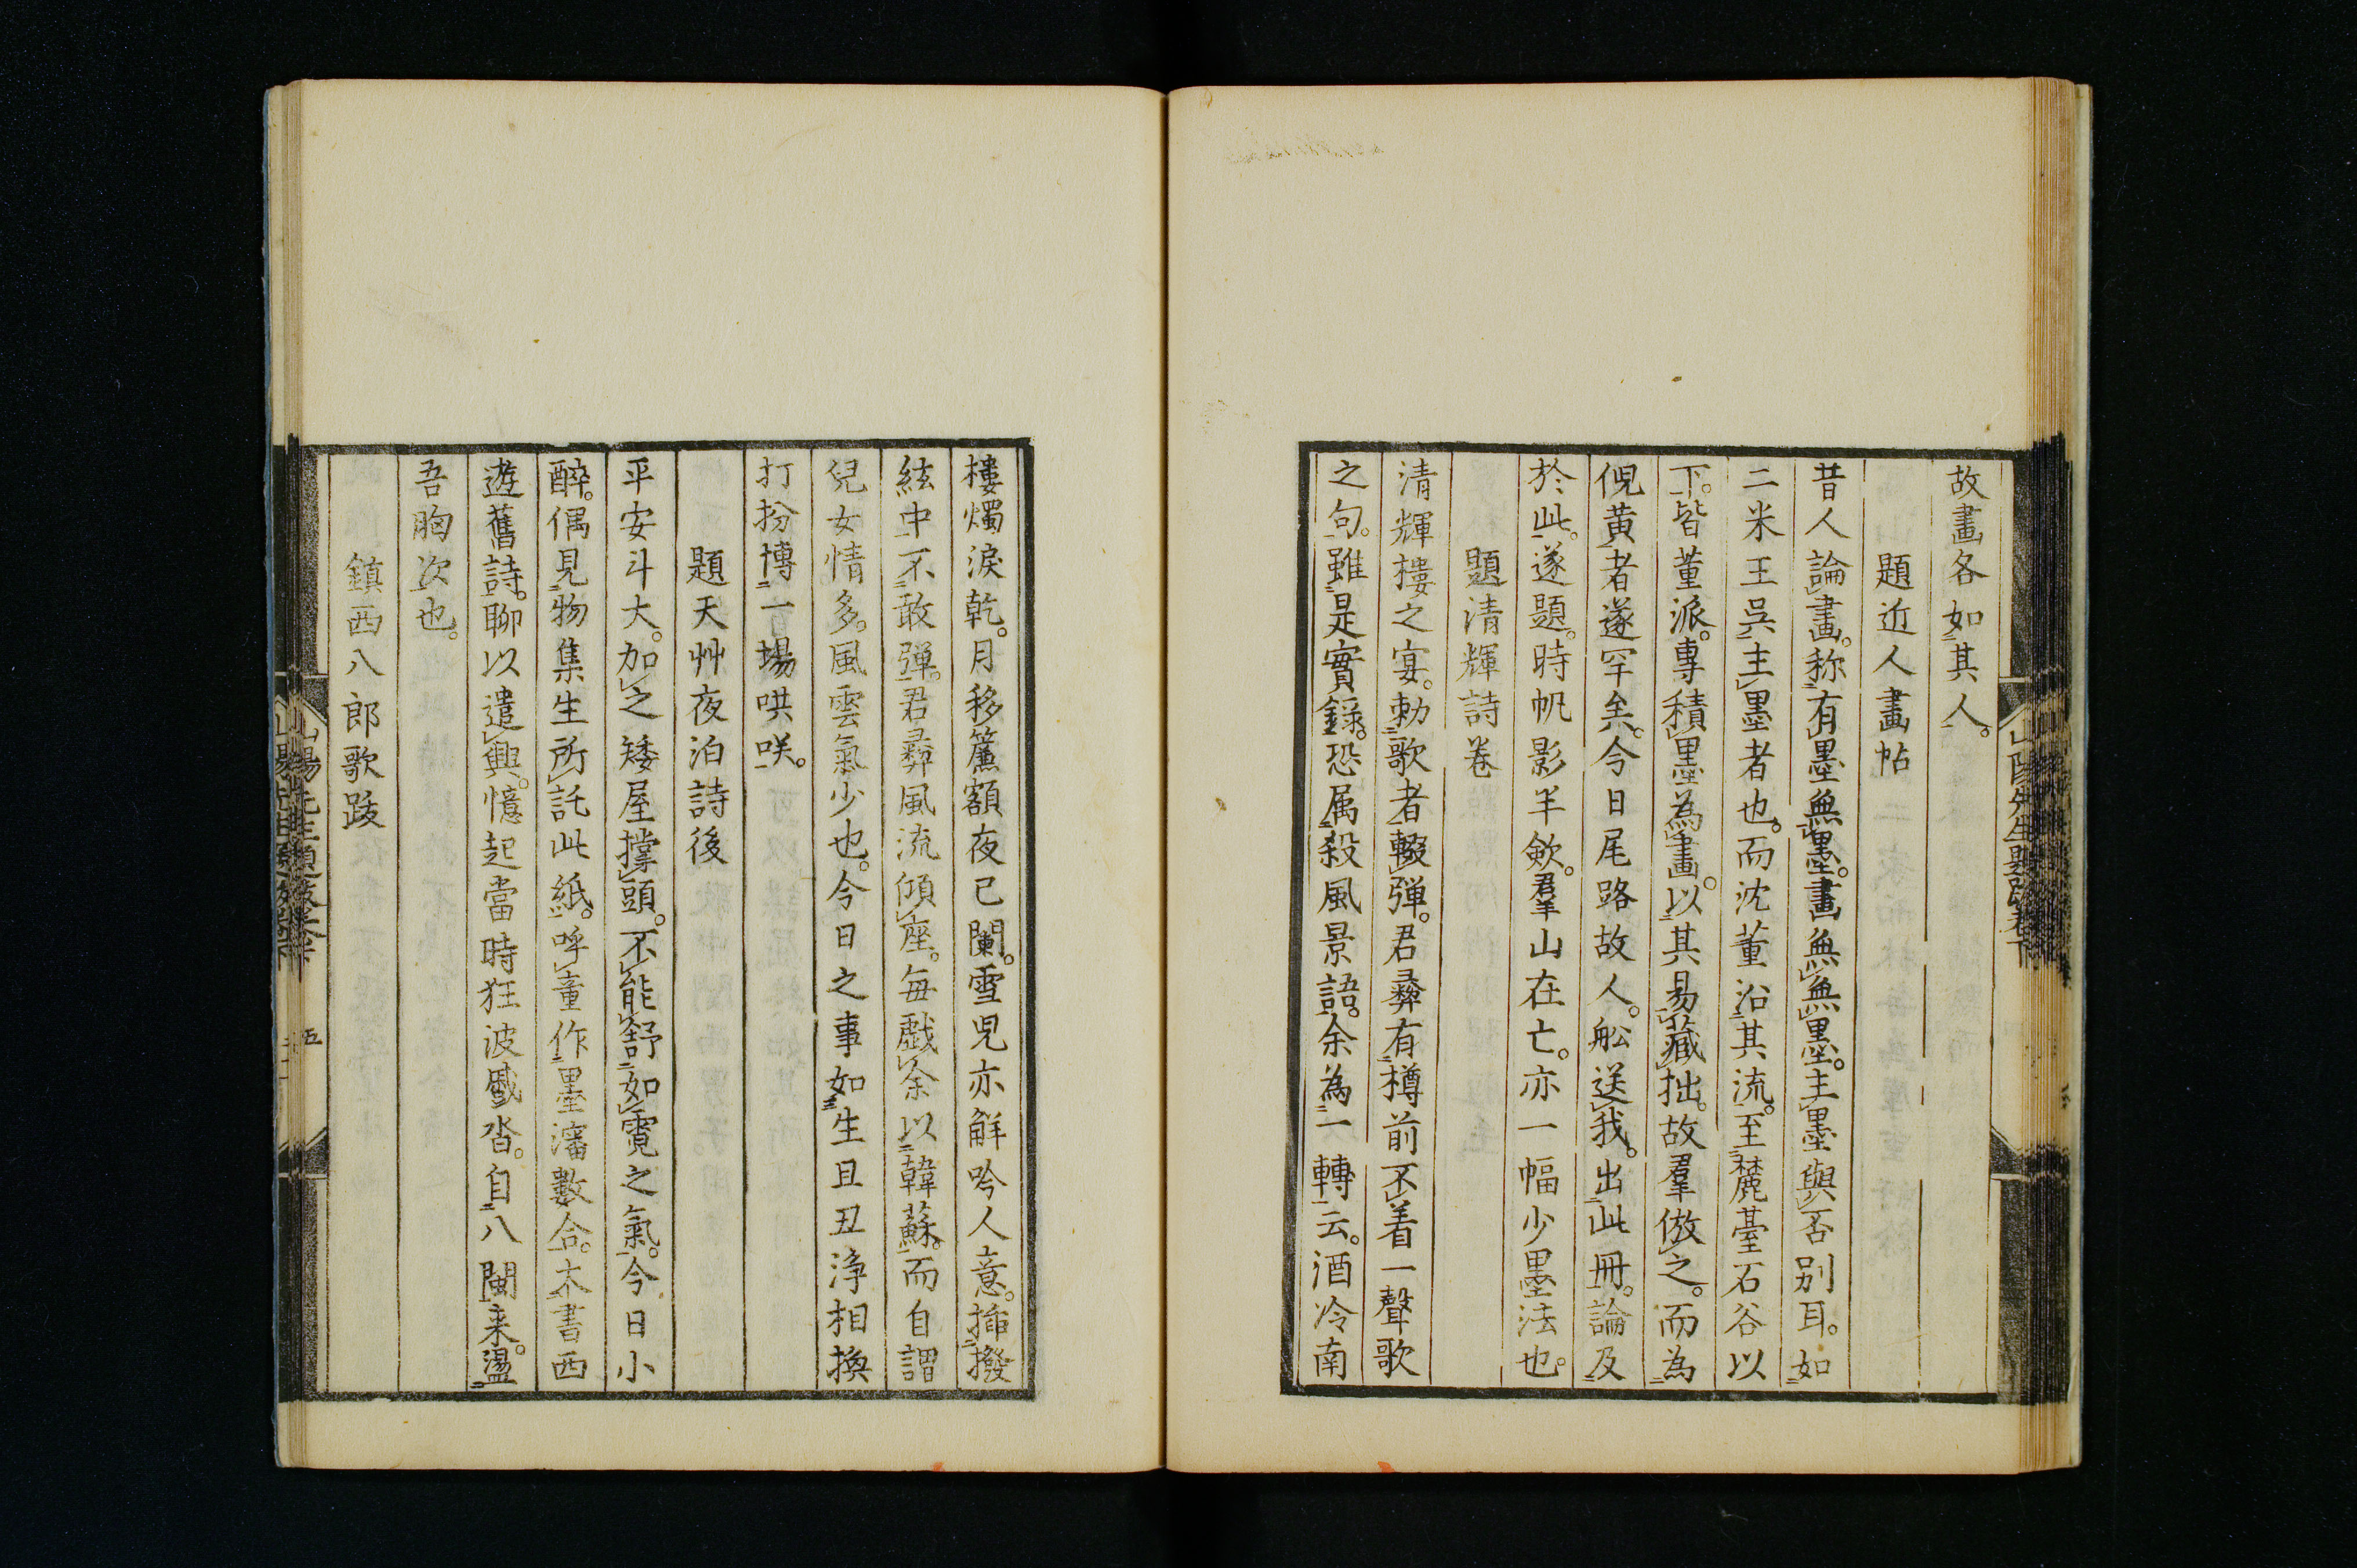 故畫各如其人。
題近人畫帖
昔人論畫。称有墨無墨。畫無無墨。主墨與否別耳。如
二米王吳主墨者也。而沈董沿其流。至麓臺石谷以
下。皆董派。專積墨為畫。以其易藏拙。故羣倣之。而為
倪黄者遂罕矣。今日尾路故人。舩送我。出此冊。論及
於此。遂題。時帆影半欹。羣山在亡。亦一幅少墨法也。
題清輝詩卷
清輝樓之宴。勅歌者輟弾。君彜有樽前不着一聲歌
之句。雖是實録。恐属殺風景語。余為一轉云。酒冷南
樓燭淚乾。月移簾額夜已闌。雪児亦解吟人意。插撥
絃中不敢弾。君彜風流傾座。毎戯余以韓蘇。而自謂
兒女情多。風雲氣少也。今日之事如生且丑浄相換
打扮博一場哄咲。
題天艸夜泊詩後
平安斗大。加之矮屋撑頭。不能舒如霓之氣。今日小
醉。偶見物集生所託此紙。呼童作墨瀋數合。大書西
遊舊詩。聊以遣興。憶起當時狂波蹙沓。自八閩来。盪
吾胸次也。
鎮西八郎歌跋
山陽先生題跋卷下
五